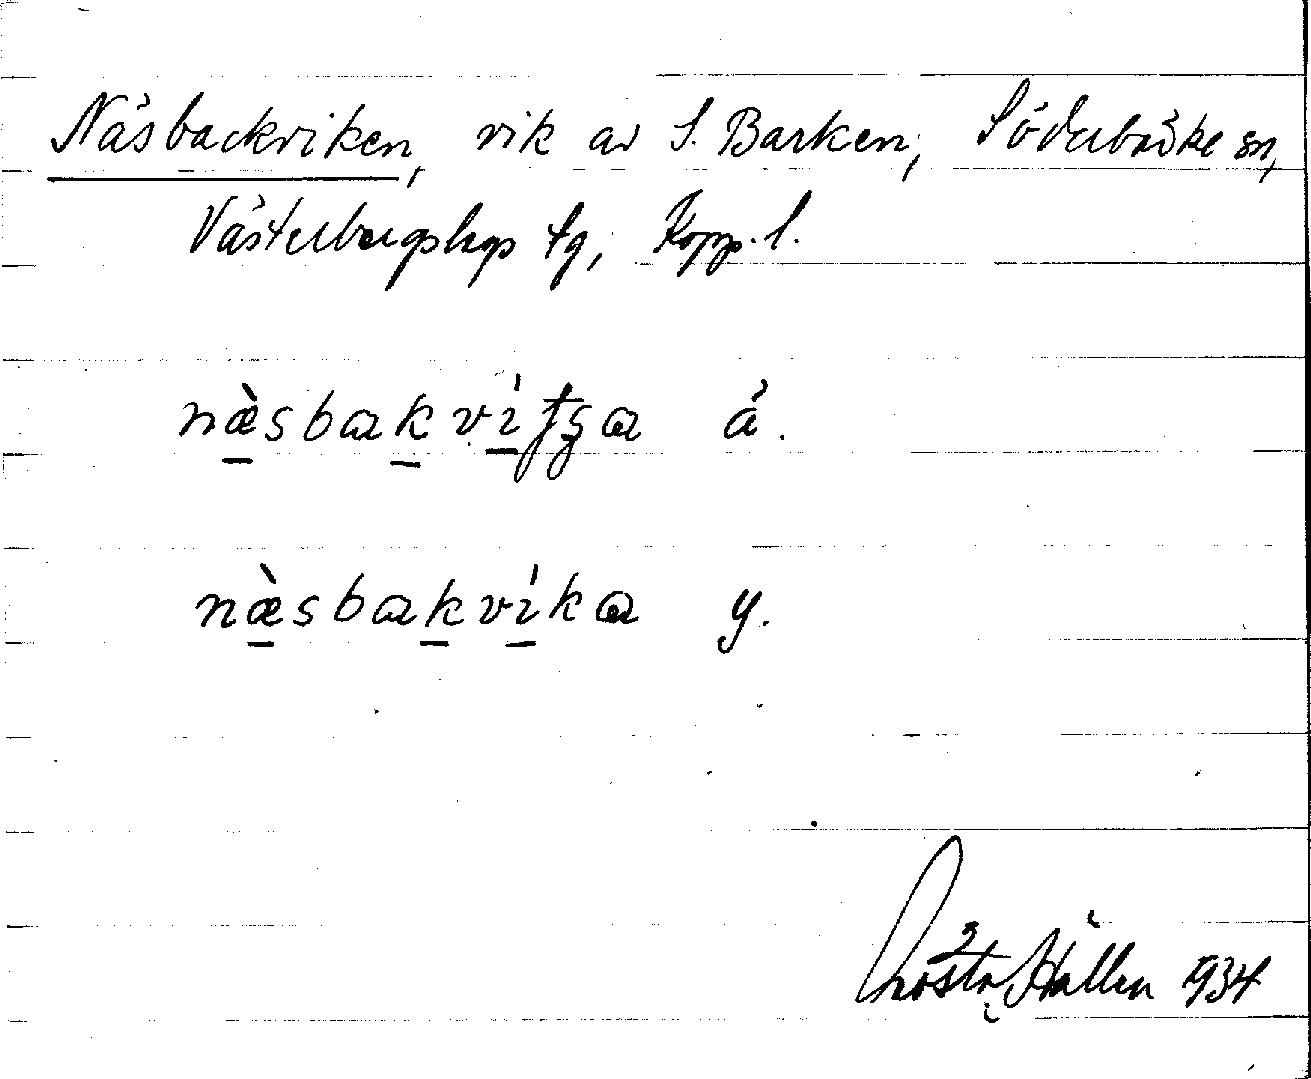 Näsbackviken, vik av S. Barken, Söderbärke sn,
Västerbergslags tg, Kopp. l.
næ̀sbakví ä.
næ̀sbakvíka y.
Gösta Hållen 1934